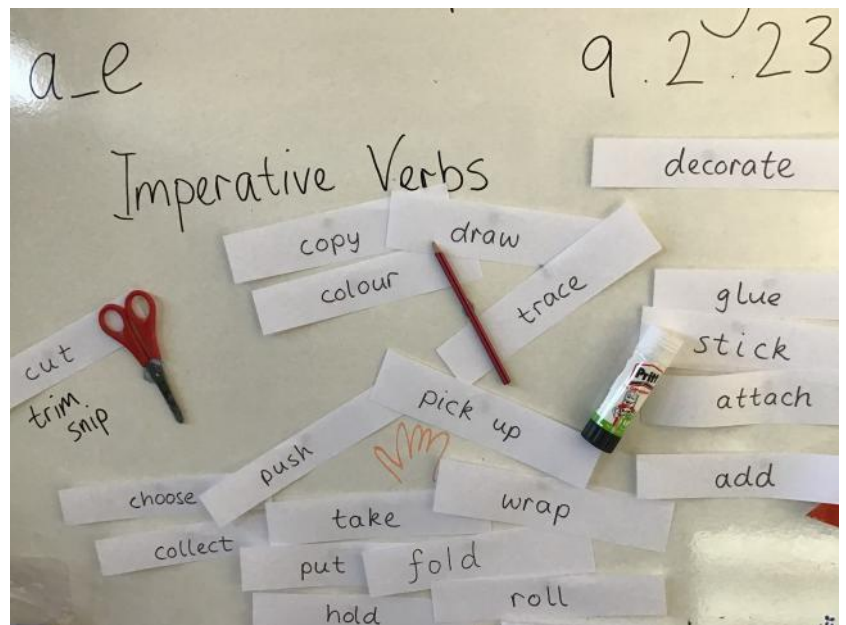 a_e
9.2.23
Imperative Verbs
decorate
copy
draw
colour
trace
glue
stick
attach
add
Pritt
cut
trim
snip
pick up
push
choose
collect
take
wrap
put
fold
hold
roll